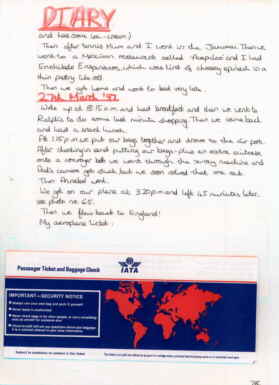 DIARY
and had some ice-cream)
Then after tennis Mum and I went in the Jacuzzi. Then we
went to a Mexican restaurant called "Acapulco" and I had
Enchilada Espinacas, which was kind of cheesey spinach in a
thin pastry like roll.
Then we got home and went to bed very late.
27th March '97
Woke up at 8:15 a.m and had breakfast and then we went to
Ralphs to do some last minute shopping. Then we came back
and had a snack lunch.
At 1:15 p.m we put our bags together and drove to the air port.
After checking in and putting our bags - plus an extra suitcase,
onto a conveyor belt we went through the x-ray machine and
Dad's camera got stuck but we soon sorted that one out.
Then Amanda went.
We got on our plane at 3.20pm and left 45 minutes later.
see photo no 65.
Then we flew back to England!
My aeroplane ticket:
Passenger Ticket and Baggage Check
IATA
IMPORTANT - SECURITY NOTICE
Always pack your own bag
Never leave it unattended